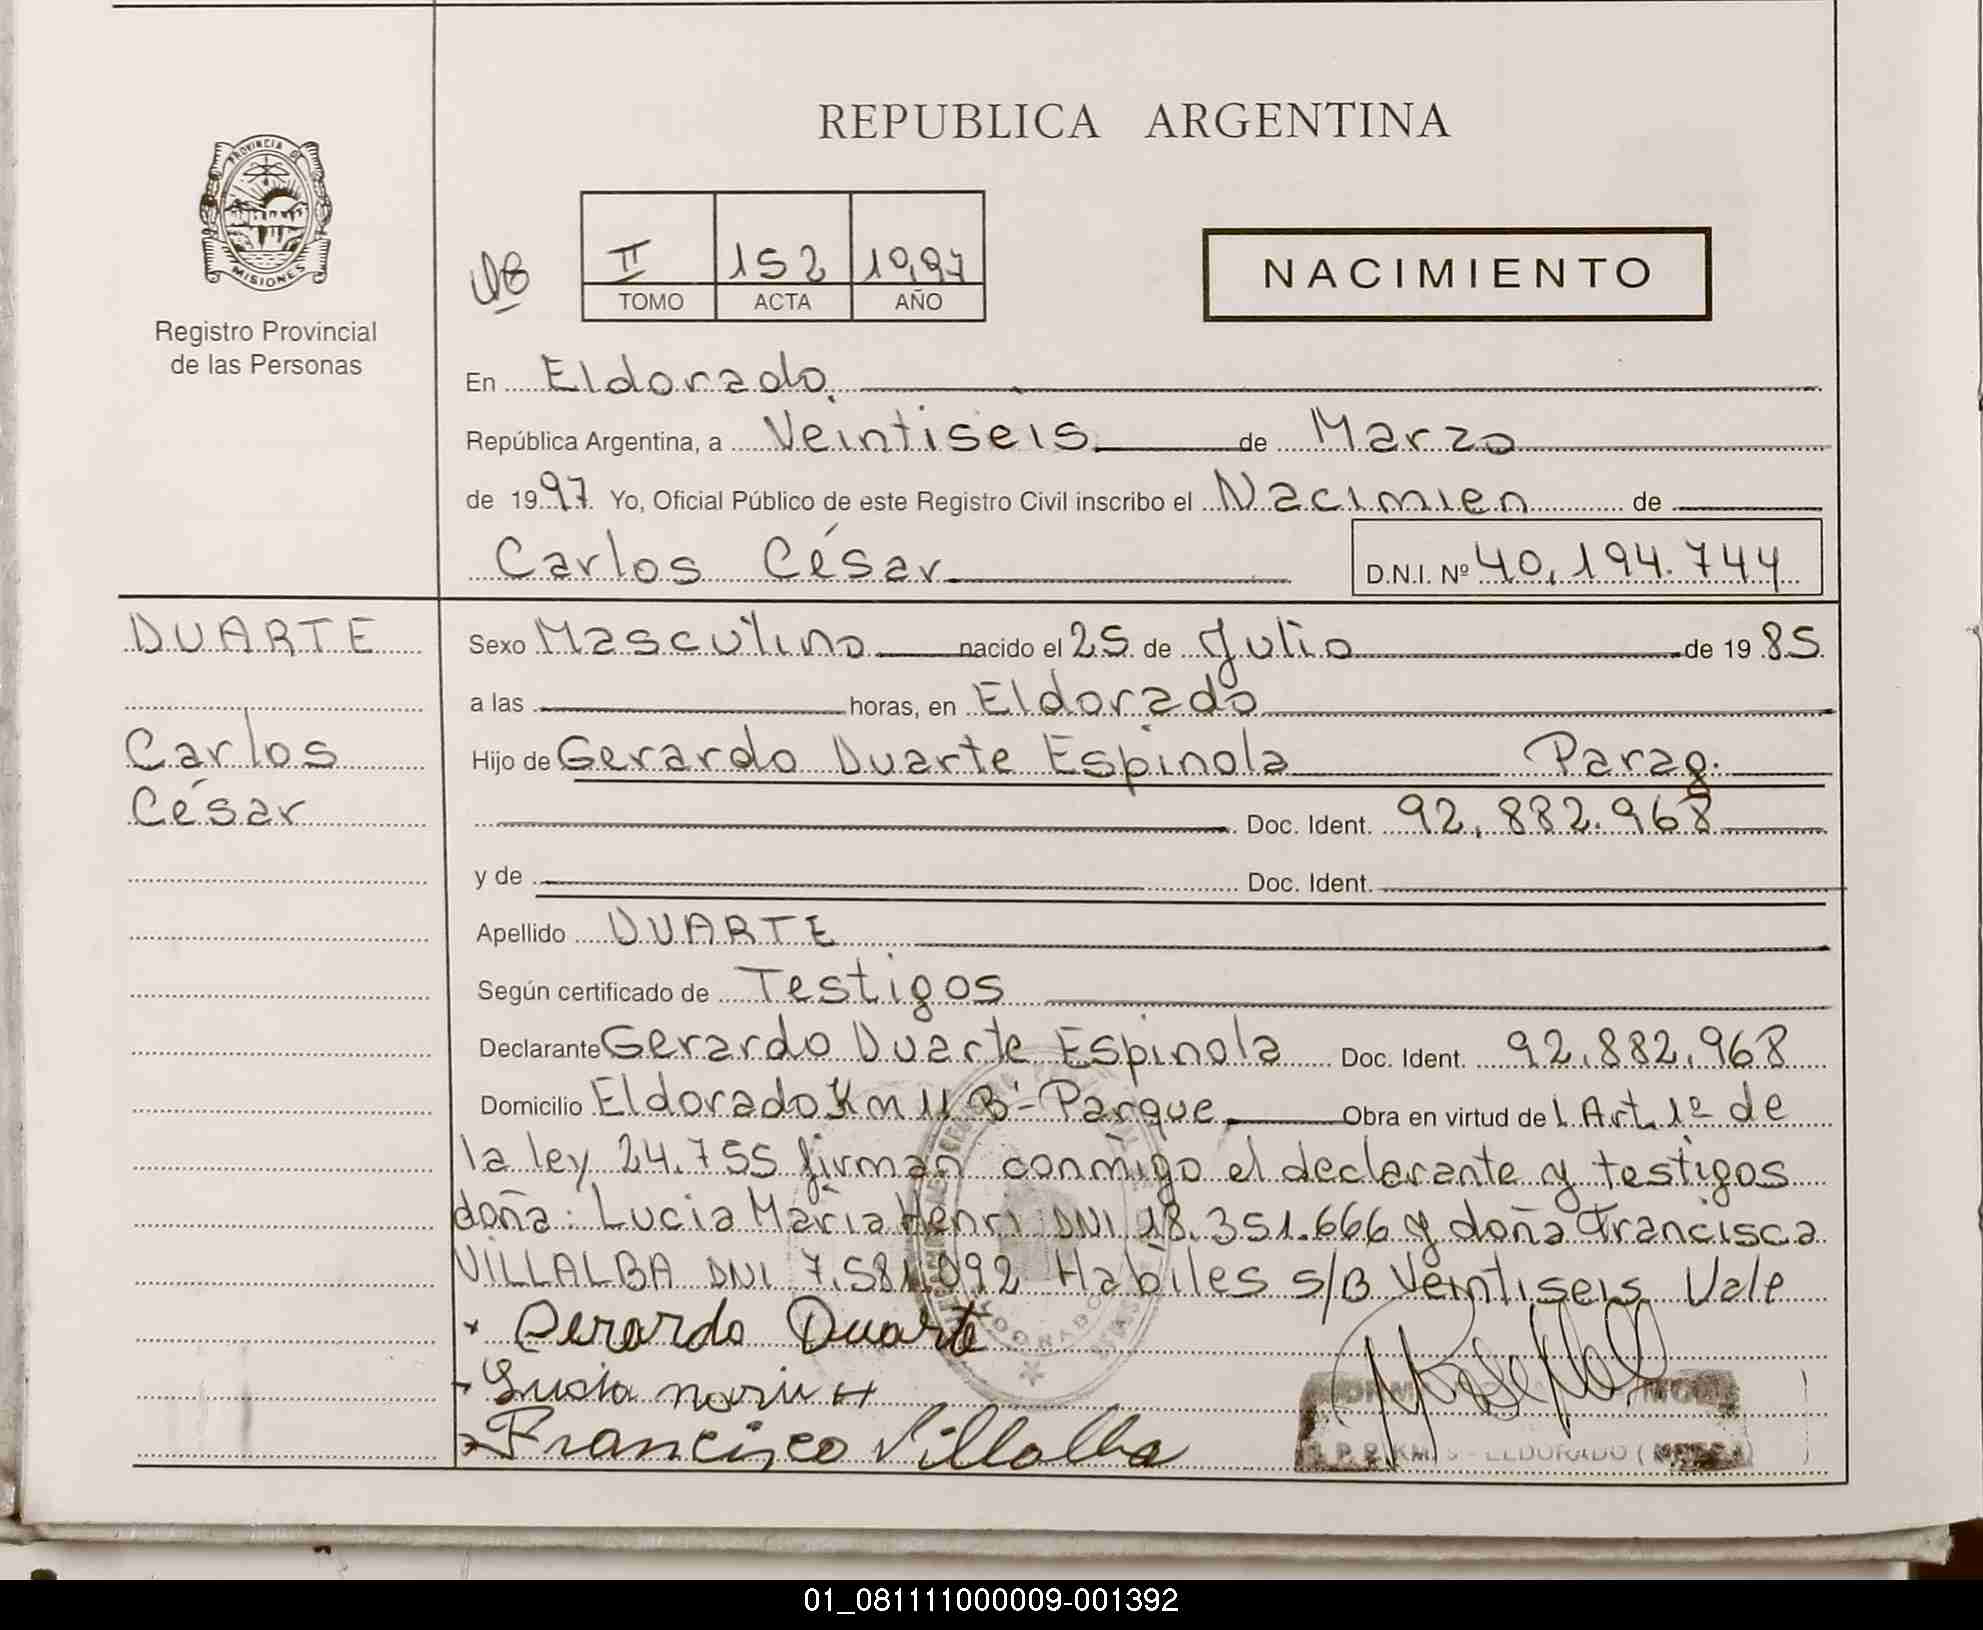 REPUBLICA ARGENTINA
PROVINCIA DE
MISIONES
Registro Provincial
de las Personas
II 152 1997
TOMO ACTA AÑO
NACIMIENTO
En Eldorado
República Argentina, a Veintiseis de Marzo
de 1997 Yo, Oficial Público de este Registro Civil inscribo el Nacimien de
Carlos César D.N.I. Nº 40.194.744
DUARTE
Carlos
César
Sexo Masculino nacido el 25 de Julio de 1985
a las horas, en Eldorado
Hijo de Gerardo Duarte Espinola Parag.
Doc. Ident. 92.882.968
y de Doc. Ident.
Apellido DUARTE
Según certificado de Testigos
Declarante Gerardo Duarte Espinola Doc. Ident. 92.882.968
Domicilio Eldorado Km 11 Bº Parque Obra en virtud del Art. 1º de
la ley 24.755 firman conmigo el declarante y testigos
doña: Lucia Maria Henri DNI 18.351.666 y doña Francisca
VILLALBA DNI 7.581.092 Habiles s/B Veintiseis Vale
Gerardo Duarte
Lucia maria H
Francisco Villalba
ELDORADO
01_081111000009-001392